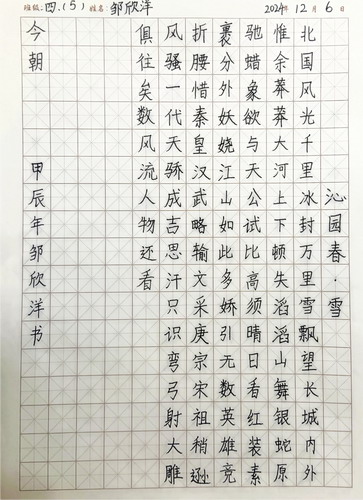 班级：四.(5) 姓名：邹欣洋 2024年12月6日
沁园春·雪
北国风光千里冰封万里雪飘望长城内外
惟余莽莽大河上下顿失滔滔山舞银蛇原
驰蜡象欲与天公试比高须晴日看红装素
裹分外妖娆江山如此多娇引无数英雄竞
折腰惜秦皇汉武略输文采庚宗宋祖稍逊
风骚一代天骄成吉思汗只识弯弓射大雕
俱往矣数风流人物还看
今朝 甲辰年邹欣洋书